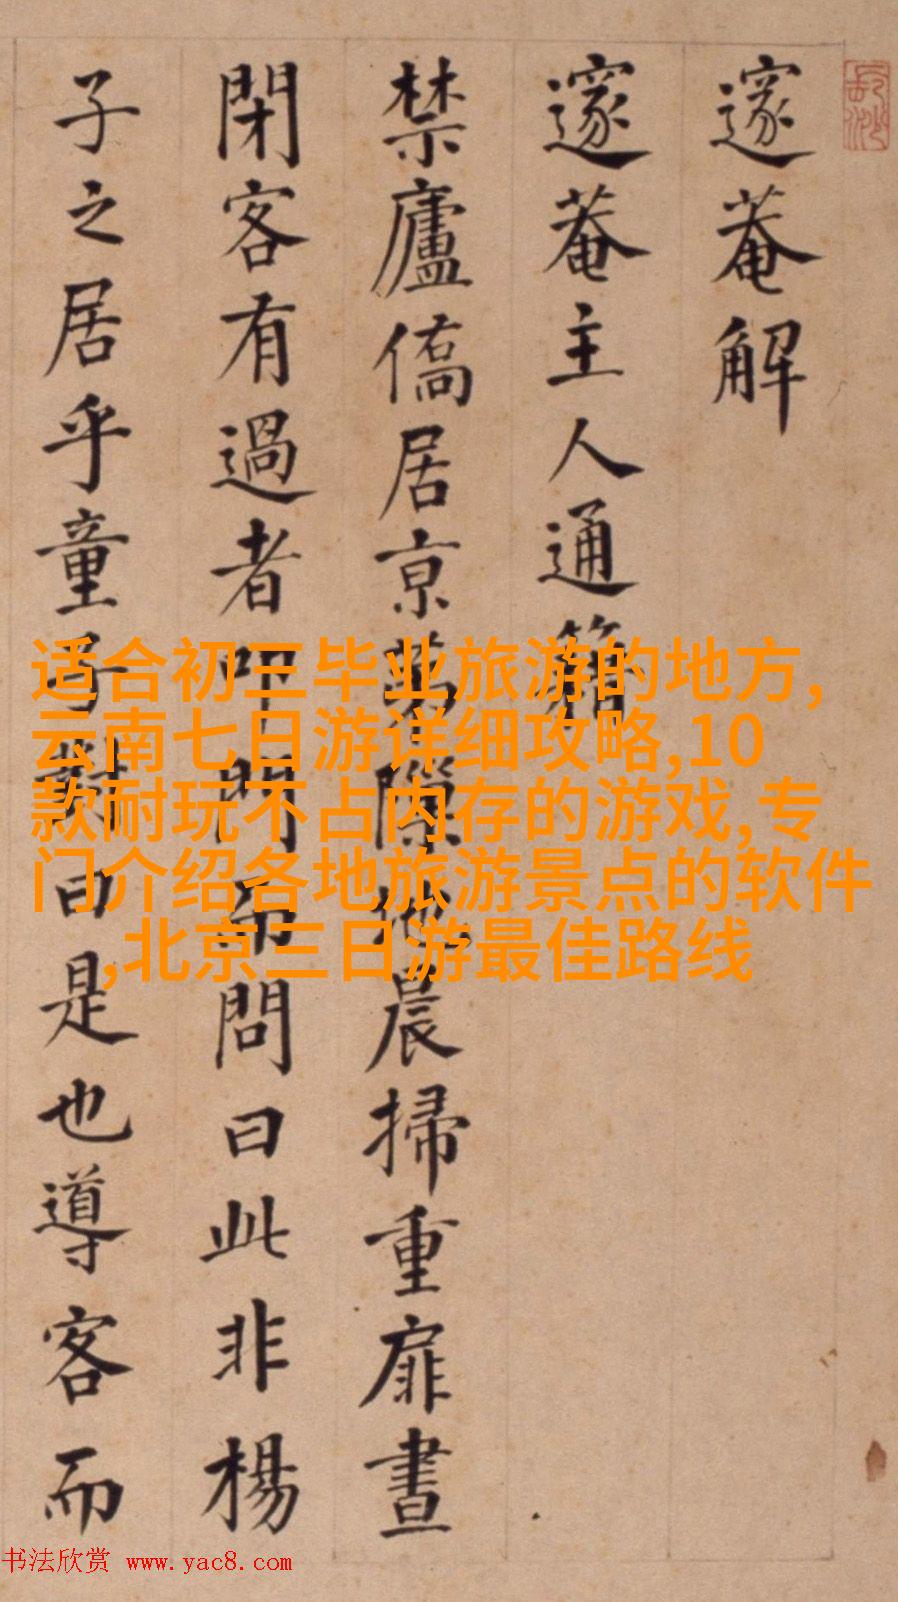 邃菴解
邃菴主人通籍
禁廬僑居亰隙地晨掃重扉晝
閉客有過者叩門而問曰此非楊
子之居乎童子對曰是也導客而
适合初三毕业旅游的地方,
云南七日游详细攻略,10
款耐玩不占内存的游戏,专
门介绍各地旅游景点的软件
,北京三日游最佳路线
书法欣赏 www.yac8.com